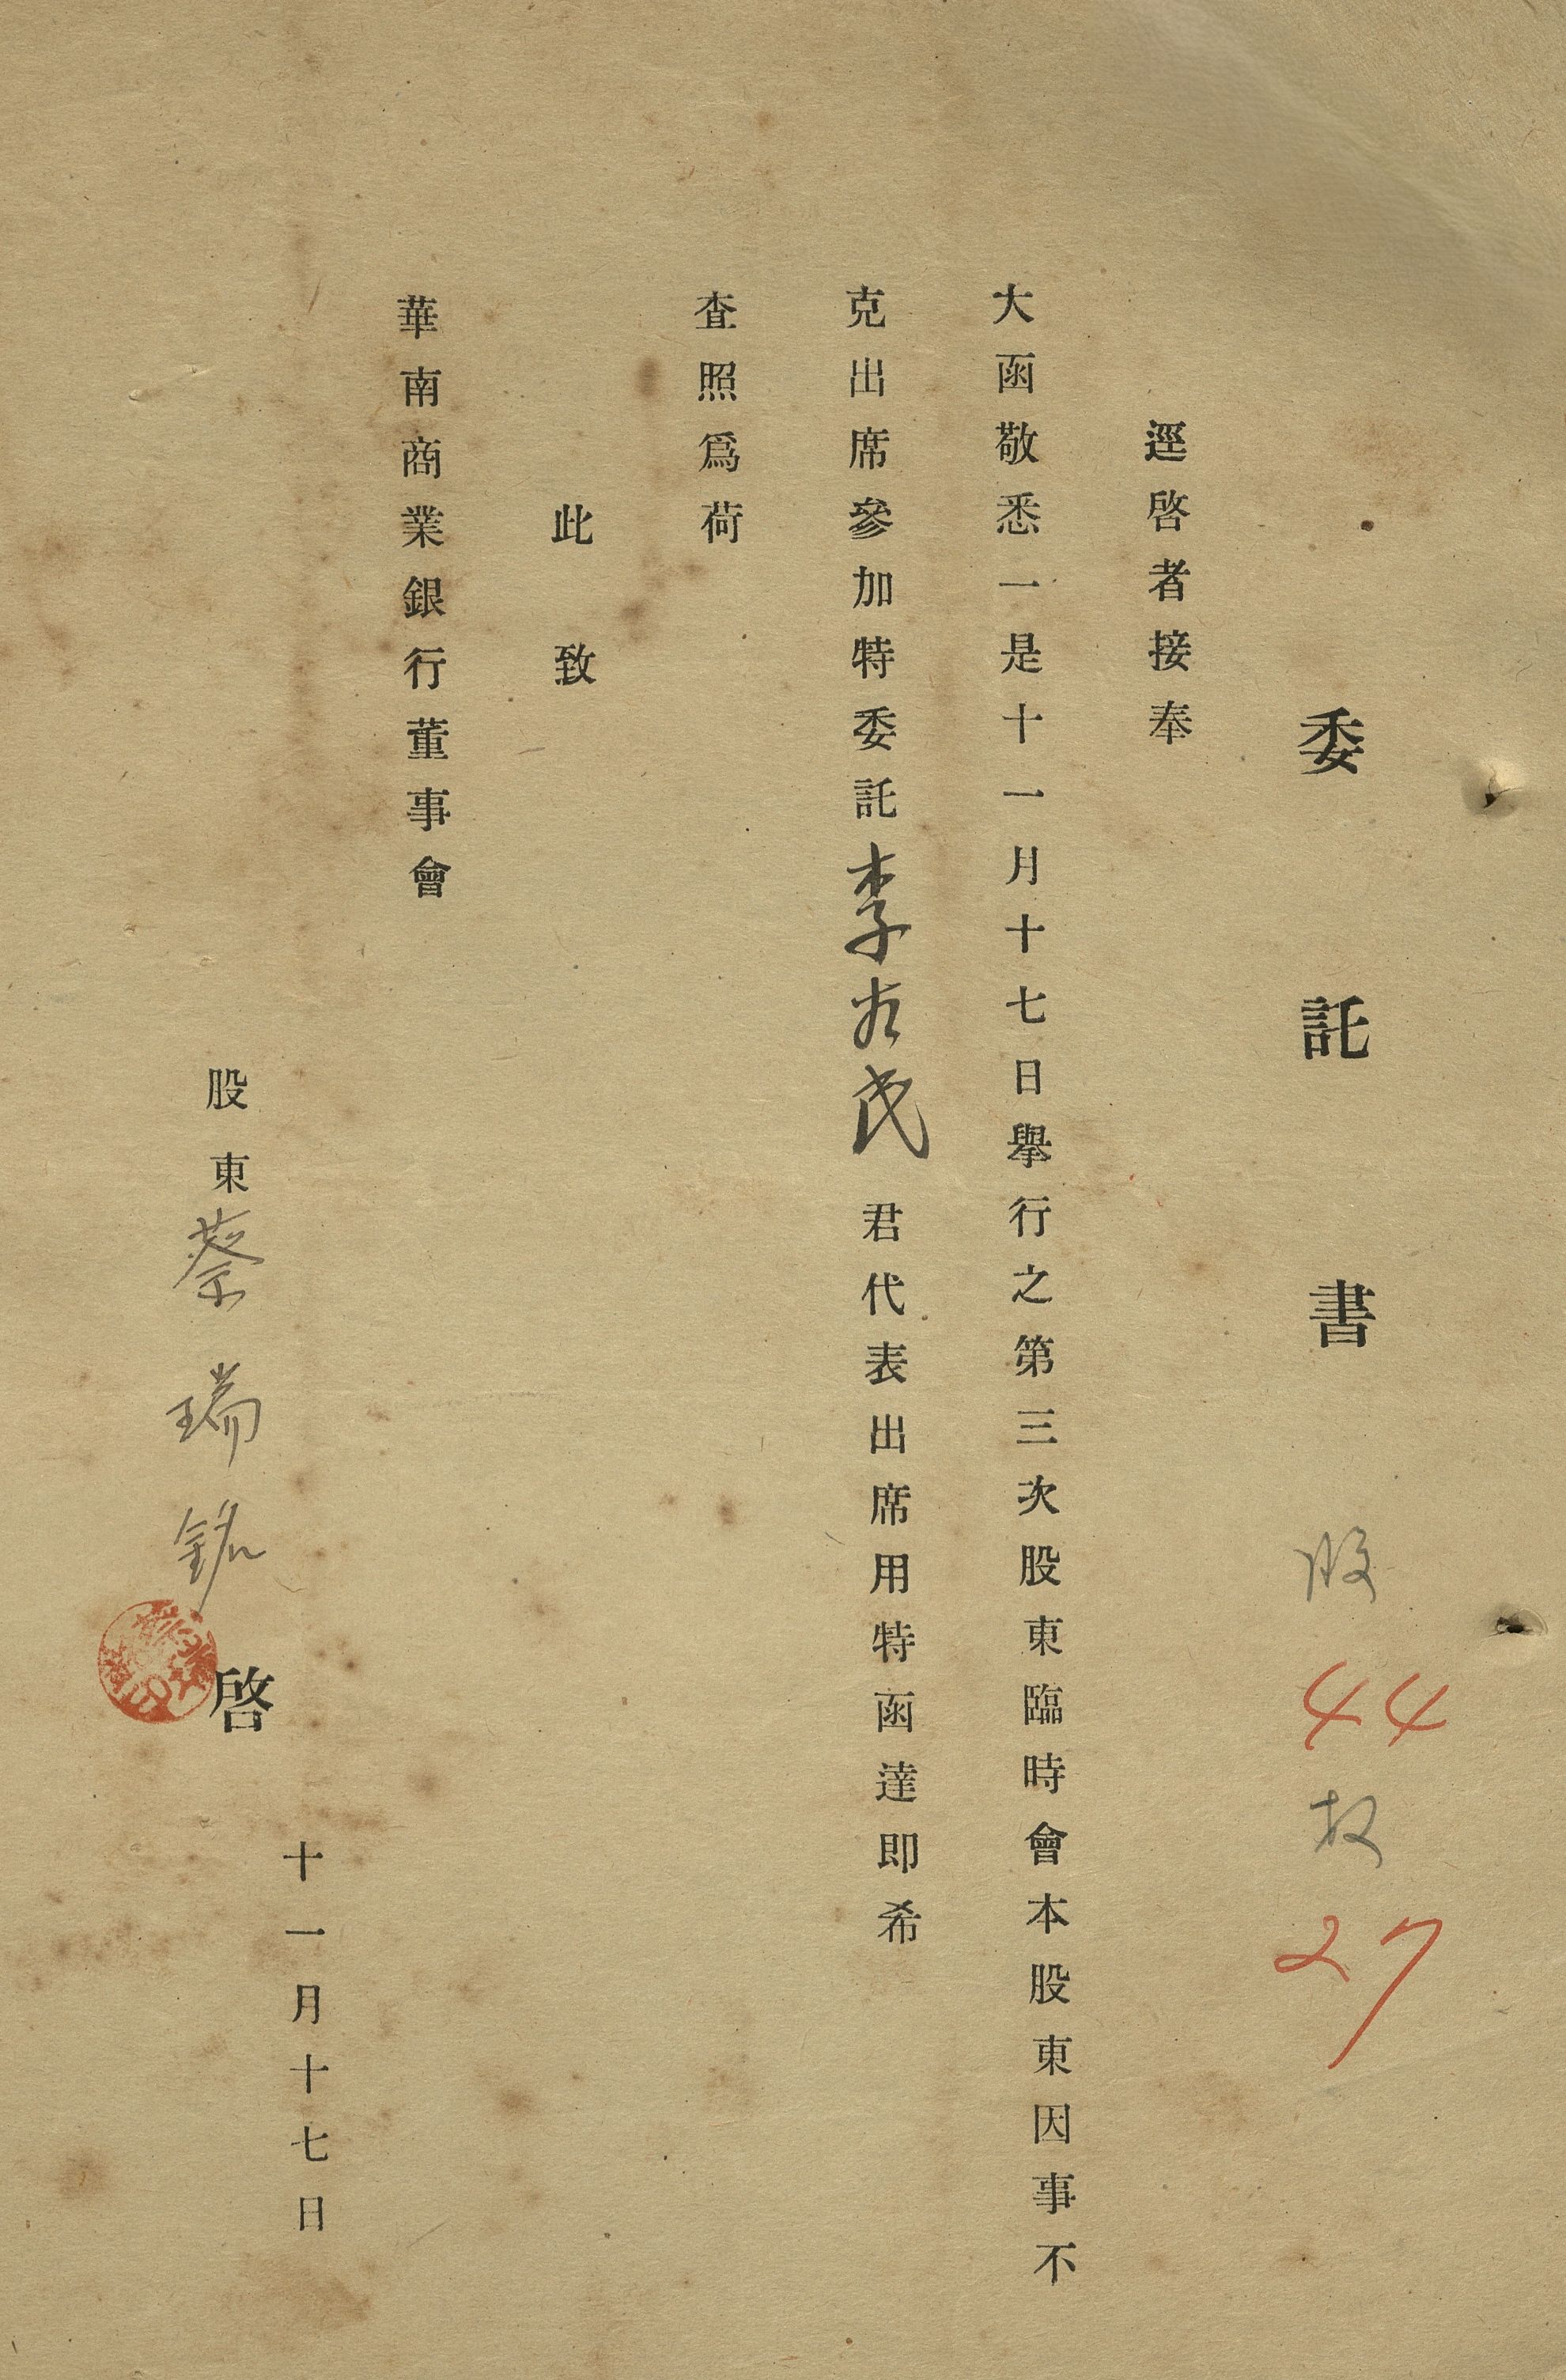 委託書
股 44 权 27
逕啓者接奉
大函敬悉一是十一月十七日舉行之第三次股東臨時會本股東因事不
克出席參加特委託李右民君代表出席用特函達即希
査照爲荷
此致
華南商業銀行董事會
十一月十七日
股東蔡瑞銘啓